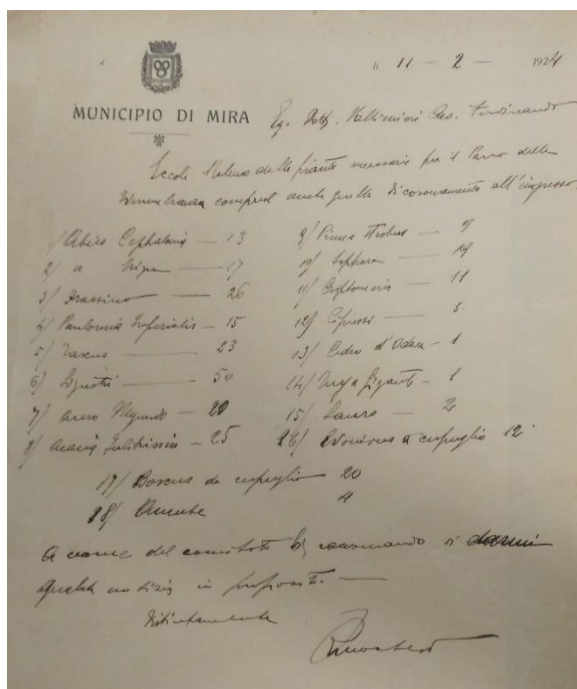 11 - 2 - 1924
MUNICIPIO DI MIRA
Eg. Dott. Ferdinando
Eccole l'elenco delle piante necessarie per il Parco della
Rimembranza compreso anche quelle di coronamento all'ingresso
1) Abies Cephalonia — 13
2) " Nigra — 17
3) Frassino — 26
4) Paulownia Imperialis — 15
5) Taxus — 23
6) Ligustri — 50
7) Acero Negundo — 20
8) Acacia Julibrissin — 25
9) Pinus Strobus — 9
10) Sophora — 19
11) Criptomeris — 11
12) Cipressi — 5
13) Cedro d'Odara — 1
14) Gigante — 1
15) Lauro — 2
16) Evonimus a cespuglio 12
17) Boscus da cespuglio 20
18) 4
A nome del comitato La raccomando di darmi
qualche notizia in proposito. —
Distintamente